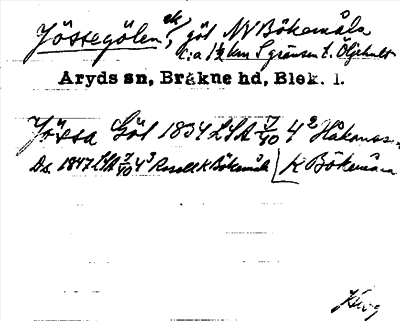 Jössegölen, sk, göl NV Bökemåla
c:a 1½ km S gränsen t. Öljehult
Aryds sn, Bräkne hd, Blek. l.
Jössa Göl 1834 LSA 7/40 4² Håkamåla
Ds. 1847 LSA 7/40 4³ K Bökemåla
K Bökemåla